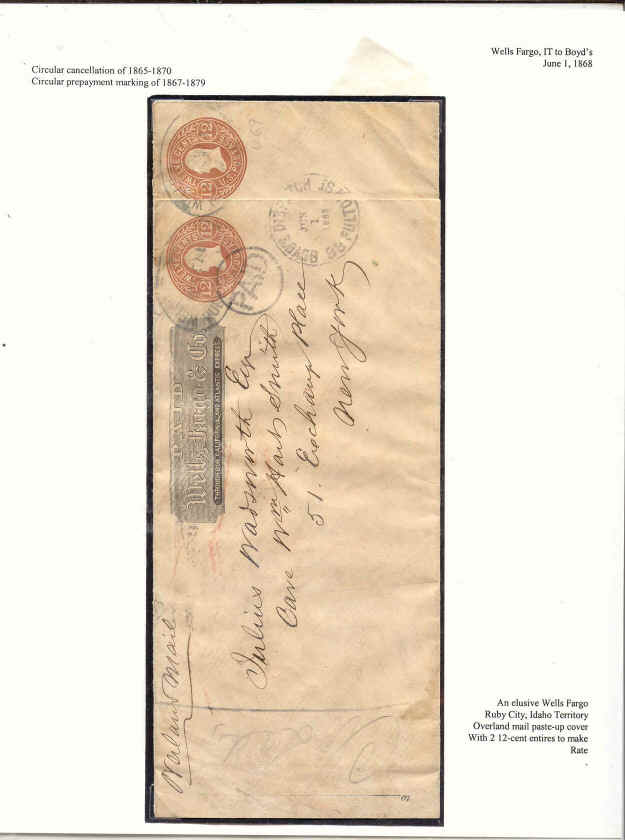 Wells Fargo, IT to Boyd's
June 1, 1868
Circular cancellation of 1865-1870
Circular prepayment marking of 1867-1879
U69
TWELVE CENTS
12
12
TWELVE CENTS
12
12
PAID
BOYD'S DISPATCH
JUN
1
1868
59 FULTON ST
PAID
Wells, Fargo & Co.
THROUGH OUR CALIFORNIA AND ATLANTIC EXPRESS
Overland Mail
Julius Wadsworth Esq
Care Wm Hart Smith
51. Exchange Place
New York
An elusive Wells Fargo
Ruby City, Idaho Territory
Overland mail paste-up cover
With 2 12-cent entires to make
Rate